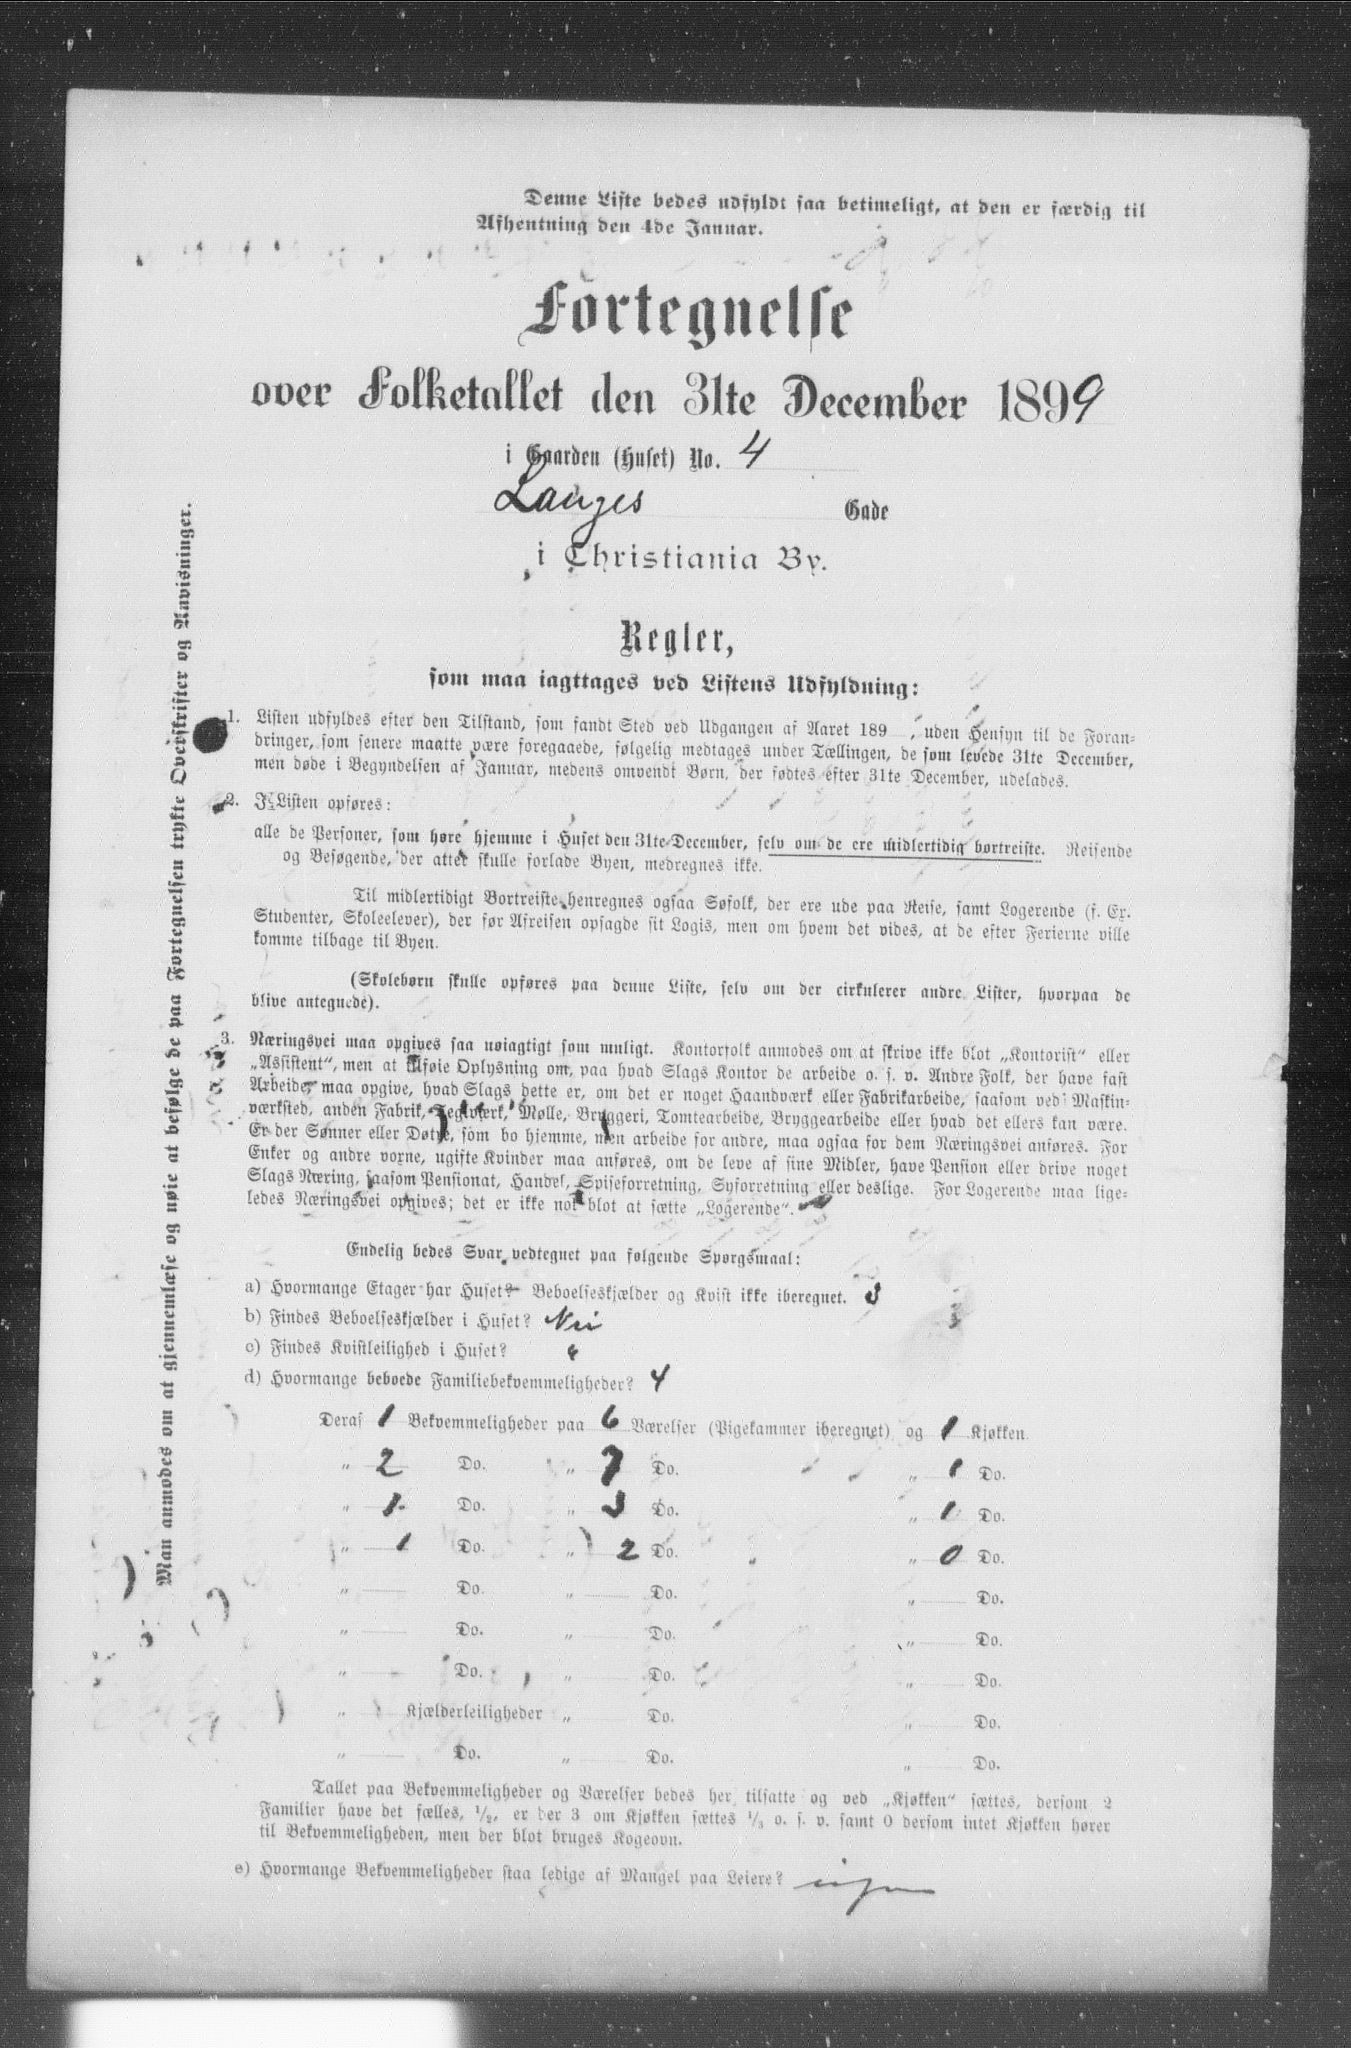 Denne Liste bedes udfyldt saa betimeligt, at den er færdig til
Afhentning den 4de Januar.
Fortegnelse
over Folketallet den 31te December 1899
i Gaarden (Huset) No. 4
Langes Gade
i Christiania By.
Regler,
som maa iagttages ved Listens Udfyldning:
1. Listen udfyldes efter den Tilstand, som fandt Sted ved Udgangen af Aaret 189 , uden Hensyn til de Foran-
dringer, som senere maatte være foregaaede, følgelig medtages under Tællingen, de som levede 31te December,
men døde i Begyndelsen af Januar, medens omvendt Børn, der fødtes efter 31te December, udelades.
2. I Listen opføres:
alle de Personer, som høre hjemme i Huset den 31te December, selv om de ere midlertidig bortreiste. Reisende
og Besøgende, der atter skulle forlade Byen, medregnes ikke.
Til midlertidigt Bortreiste henregnes ogsaa Søfolk, der ere ude paa Reise, samt Logerende (f. Ex.
Studenter, Skoleelever), der før Afreisen opsagde sit Logis, men om hvem det vides, at de efter Ferierne ville
komme tilbage til Byen.
(Skolebørn skulle opføres paa denne Liste, selv om der cirkulerer andre Lister, hvorpaa de
blive antegnede).
3. Næringsvei maa opgives saa nøiagtigt som muligt. Kontorfolk anmodes om at skrive ikke blot „Kontorist“ eller
„Assistent“, men at tilføie Oplysning om, paa hvad Slags Kontor de arbeide o. s. v. Andre Folk, der have fast
Arbeide, maa opgive, hvad Slags dette er, om det er noget Haandværk eller Fabrikarbeide, saasom ved Maskin-
værksted, anden Fabrik, Teglværk, Mølle, Bryggeri, Tomtearbeide, Bryggearbeide eller hvad det ellers kan være.
Er der Sønner eller Døtre, som bo hjemme, men arbeide for andre, maa ogsaa for dem Næringsvei anføres. For
Enker og andre voxne, ugifte Kvinder maa anføres, om de leve af sine Midler, have Pension eller drive noget
Slags Næring, saasom Pensionat, Handel, Spiseforretning, Syforretning eller deslige. For Logerende maa lige-
ledes Næringsvei opgives; det er ikke nok blot at sætte „Logerende“.
Endelig bedes Svar vedtegnet paa følgende Spørgsmaal:
a) Hvormange Etager har Huset? Beboelseskjælder og Kvist ikke iberegnet. 3
b) Findes Beboelseskjælder i Huset? Nei
c) Findes Kvistleilighed i Huset? "
d) Hvormange beboede Familiebekvemmeligheder? 4
Deraf 1 Bekvemmeligheder paa 6 Værelser (Pigekammer iberegnet) og 1 Kjøkken
„ 2 Do. „ 7 Do. „ 1 Do.
„ 1 Do. „ 3 Do. „ 1 Do.
„ 1 Do. „ 2 Do. „ 0 Do.
„ Do. „ Do. „ Do.
„ Do. „ Do. „ Do.
„ Do. „ Do. „ Do.
„ Kjælderleiligheder „ Do. „ Do.
„ Do. „ Do. „ Do.
Tallet paa Bekvemmeligheder og Værelser bedes her tilsatte og ved „Kjøkken“ sættes, dersom 2
Familier have det fælles, 1/2, er der 3 om Kjøkken sættes 1/3 o. s. v. samt 0 dersom intet Kjøkken hører
til Bekvemmeligheden, men der blot bruges Kogeovn.
e) Hvormange Bekvemmeligheder staa ledige af Mangel paa Leiere? ingen
Man anmodes om at gjennemlæse og nøie at befølge de paa Fortegnelsen trykte Overskrifter og Anvisninger.